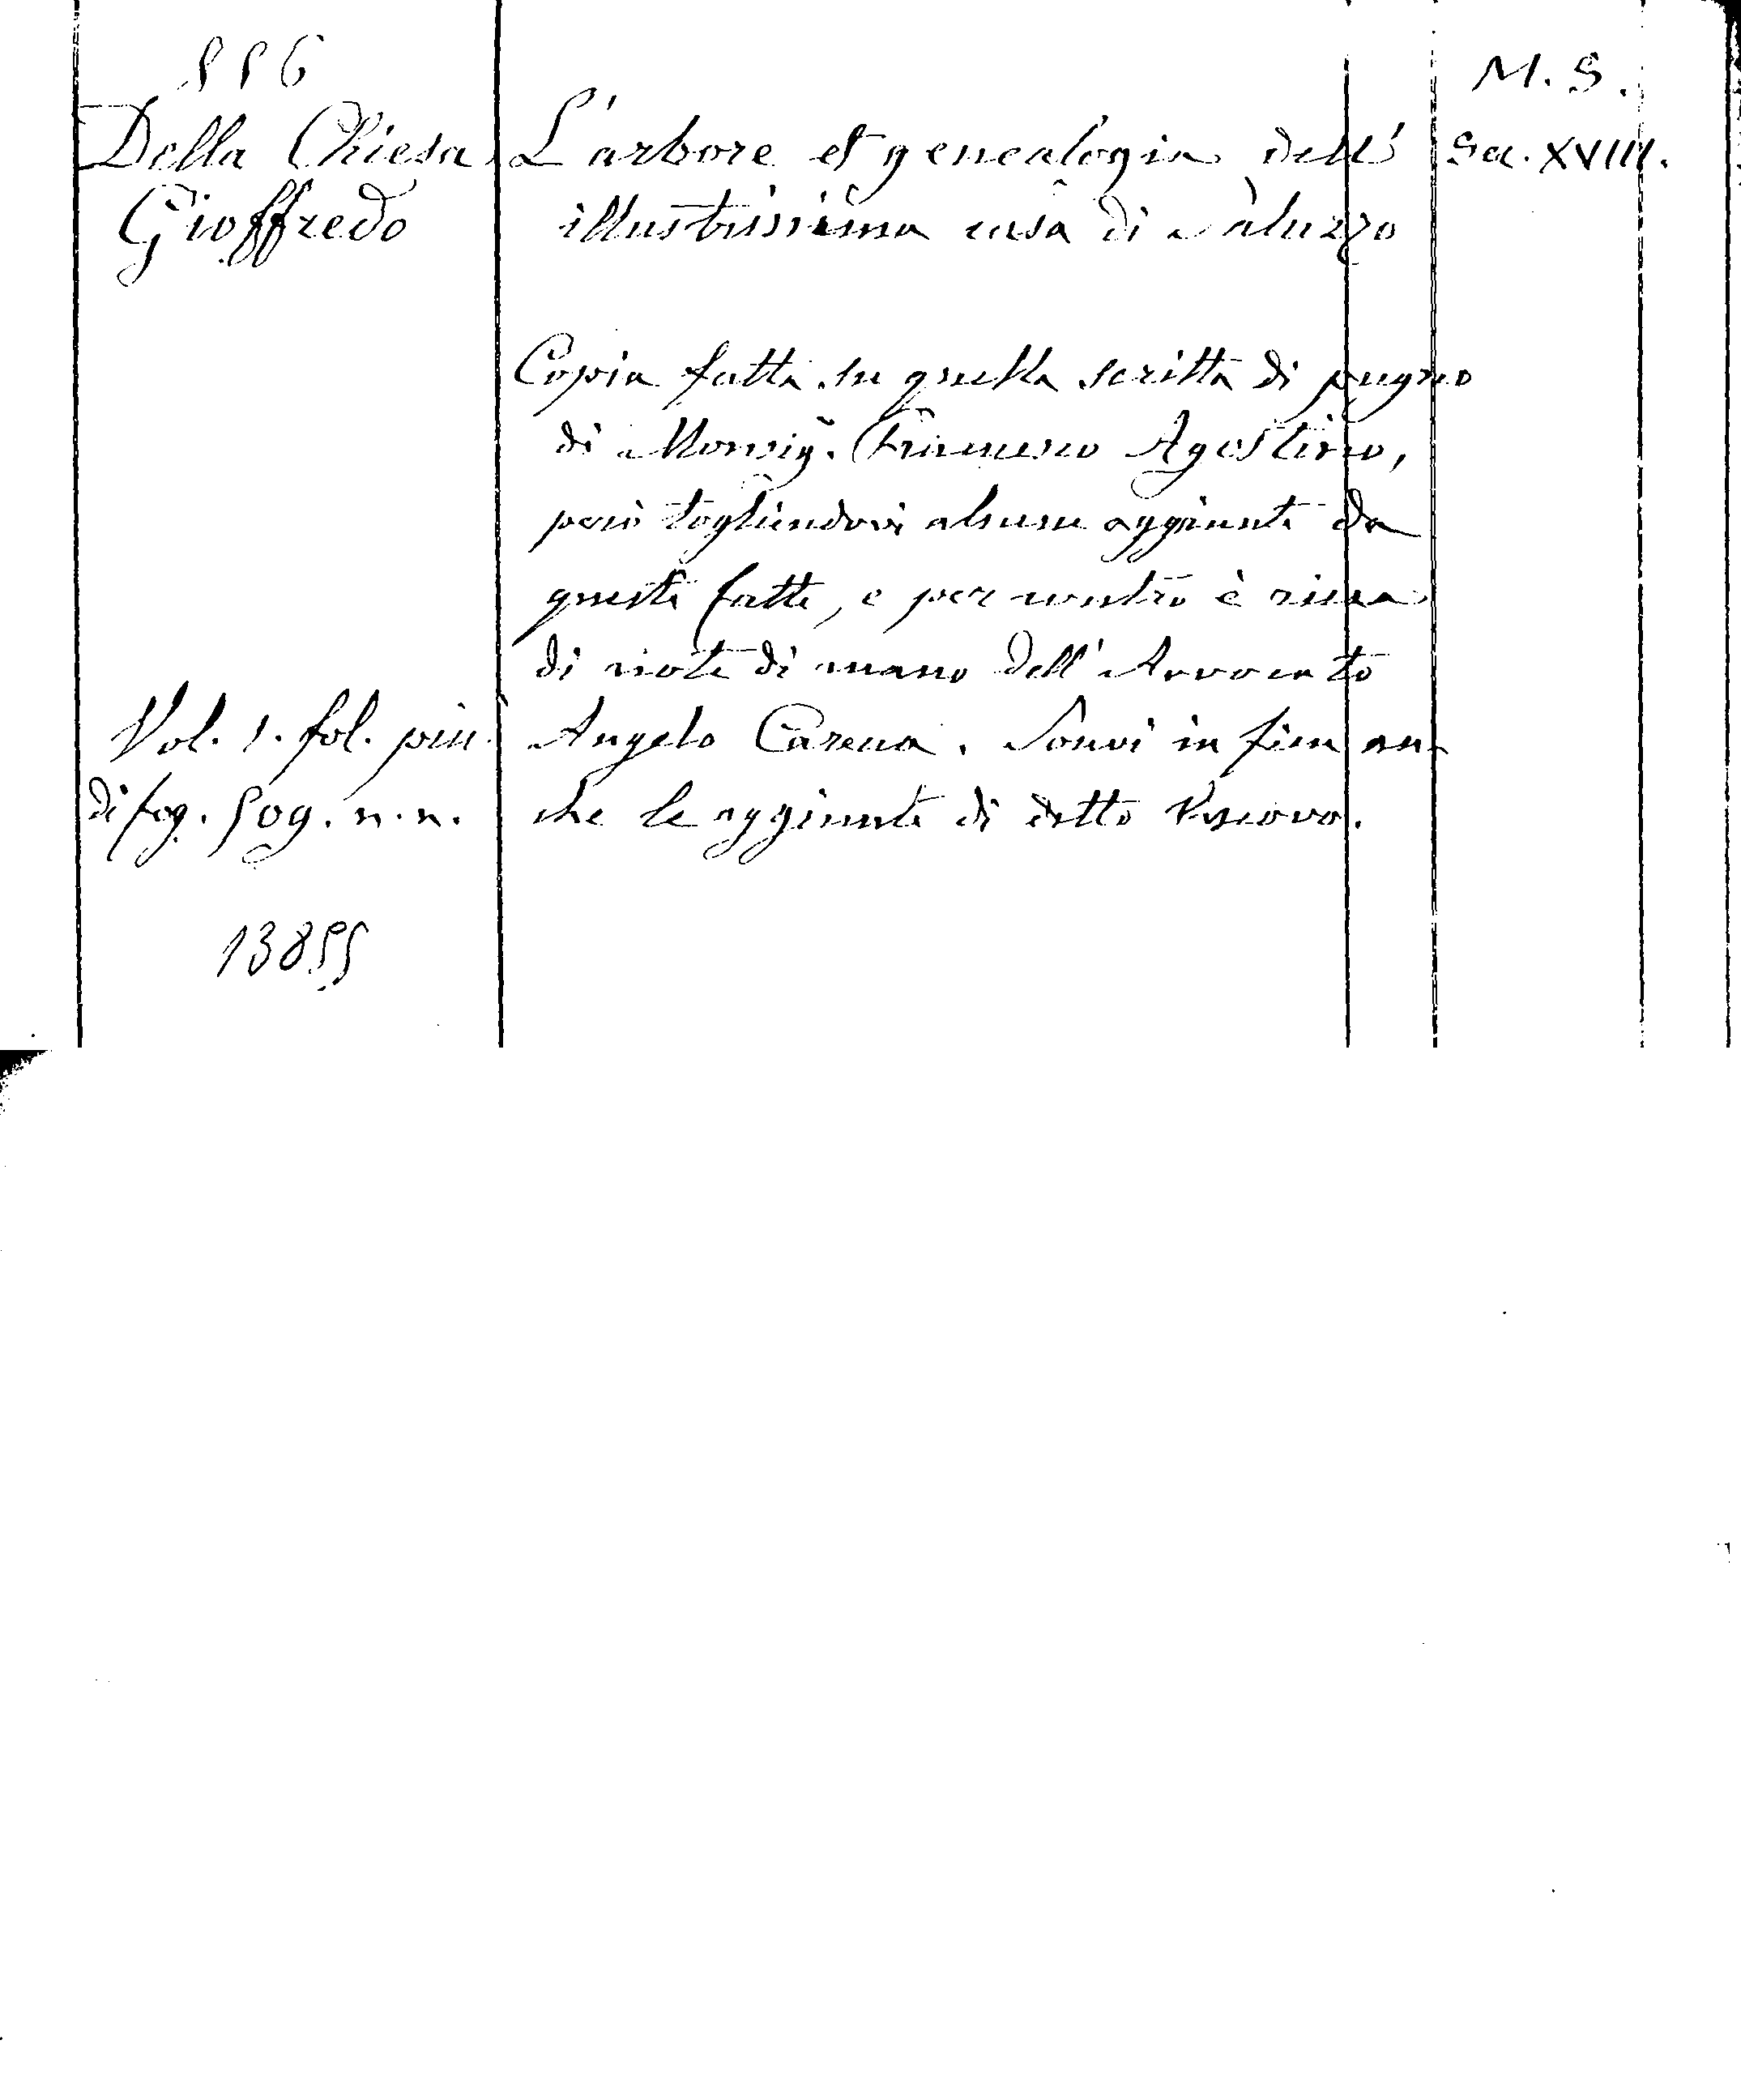 556
M. S.
Della Chiesa
Gioffredo
L'arbore et genealogia dell'
illustrissima casa di Saluzzo
Sec. XVIII.
Copia fatta su quella scritta di pugno
di Monsig.r Francesco Agostino,
però togliendovi alcune aggiunte da
questi fatte, e per contro è ricca
di note di mano dell'Avvocato
Angelo Carena. Sonvi in fine an-
che le aggiunte di detto Vescovo.
Vol. 1. fol. picc.
di fog. 50g. n. n.
13855